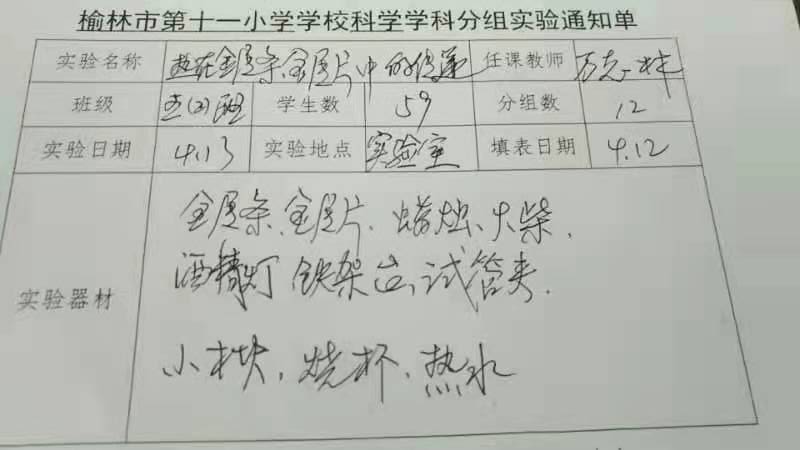 榆林市第十一小学学校科学学科分组实验通知单
实验名称 热在金属条、金属片中的传递 任课教师
班级 五(2)班 学生数 59 分组数 12
实验日期 4.13 实验地点 实验室 填表日期 4.12
金属条、金属片、蜡烛、火柴、
酒精灯 铁架台、试管夹、
实验器材
小木块、烧杯、热水